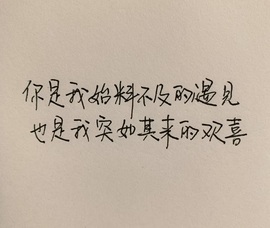 你是我始料不及的遇见
也是我突如其来的欢喜